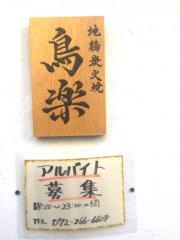 地鶏炭火焼
鳥楽
アルバイト
募集
18:00~23:00の間
TEL 072-266-6608